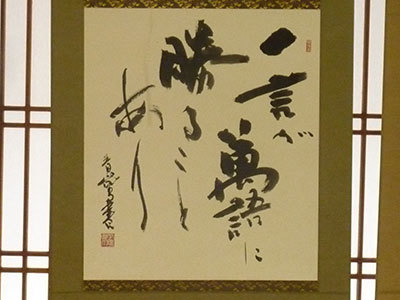 一言が
萬語に
勝ること
あり